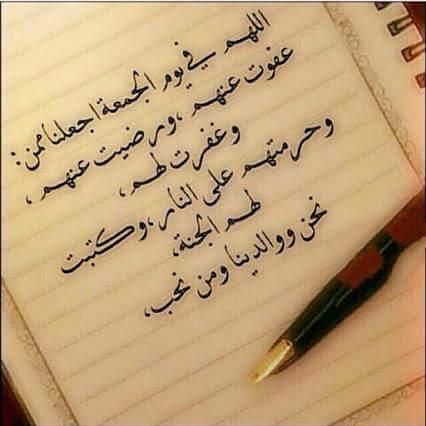 اللهم في يوم الجمعة اجعلنا ممن :
عفوت عنهم ، ورضيت عنهم ،
وغفرت لهم ،
وحرمتهم على النار ، وكتبت
لهم الجنة ،
نحن ووالدينا ومن نحب ،